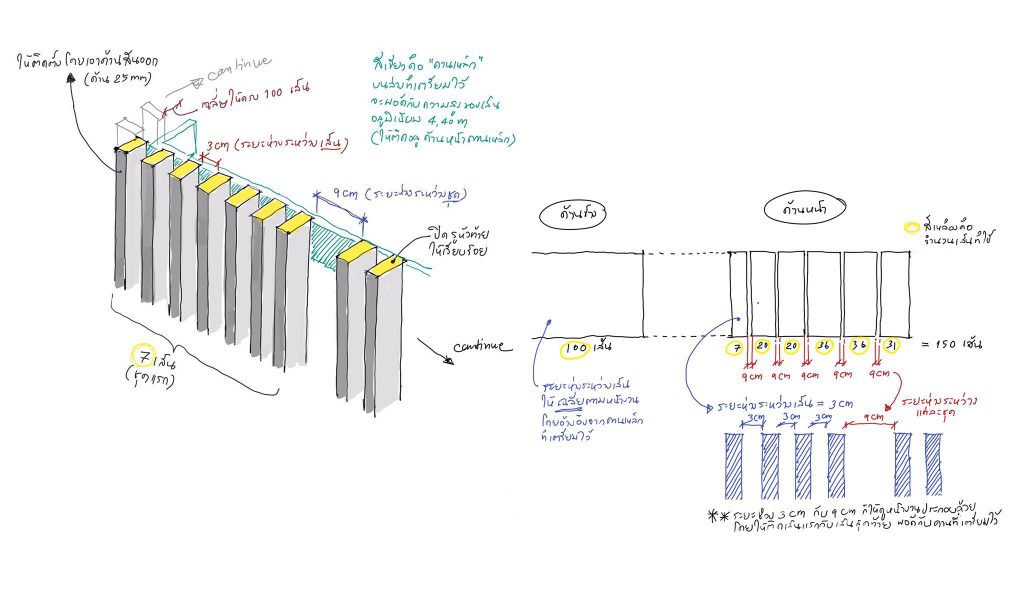 ให้ติดตั้งโดยเอาด้านสันออก
(ด้าน 25mm)
continue
เฉลี่ยให้ครบ 100 เส้น
3cm (ระยะห่างระหว่างเส้น)
สีเขียวคือ "คานเหล็ก"
บนล่างที่เตรียมไว้
จะพอดีกับความสูงของเส้น
อลูมิเนียม 4.40 m
(ให้ติดอยู่ด้านหน้าคานเหล็ก)
9cm (ระยะห่างระหว่างชุด)
ปิดรูหัวท้าย
ให้เรียบร้อย
7 เส้น
(ชุดแรก)
continue
ด้านข้าง
ด้านหน้า
สีเหลืองคือ
จำนวนเส้นที่ใช้
100 เส้น
7 20 20 36 36 31 = 150 เส้น
9cm 9cm 9cm 9cm 9cm
ระยะห่างระหว่างเส้น
ให้เฉลี่ยตามหน้างาน
โดยอ้างอิงจากคานเหล็ก
ที่เตรียมไว้
ระยะห่างระหว่างเส้น = 3cm
ระยะห่างระหว่าง
แต่ละชุด
3cm 3cm 3cm 9cm
** ระยะห่าง 3cm กับ 9cm ก็ให้ดูหน้างานประกอบด้วย
โดยให้ติดเส้นแรกกับเส้นสุดท้าย พอดีกับคานที่เตรียมไว้